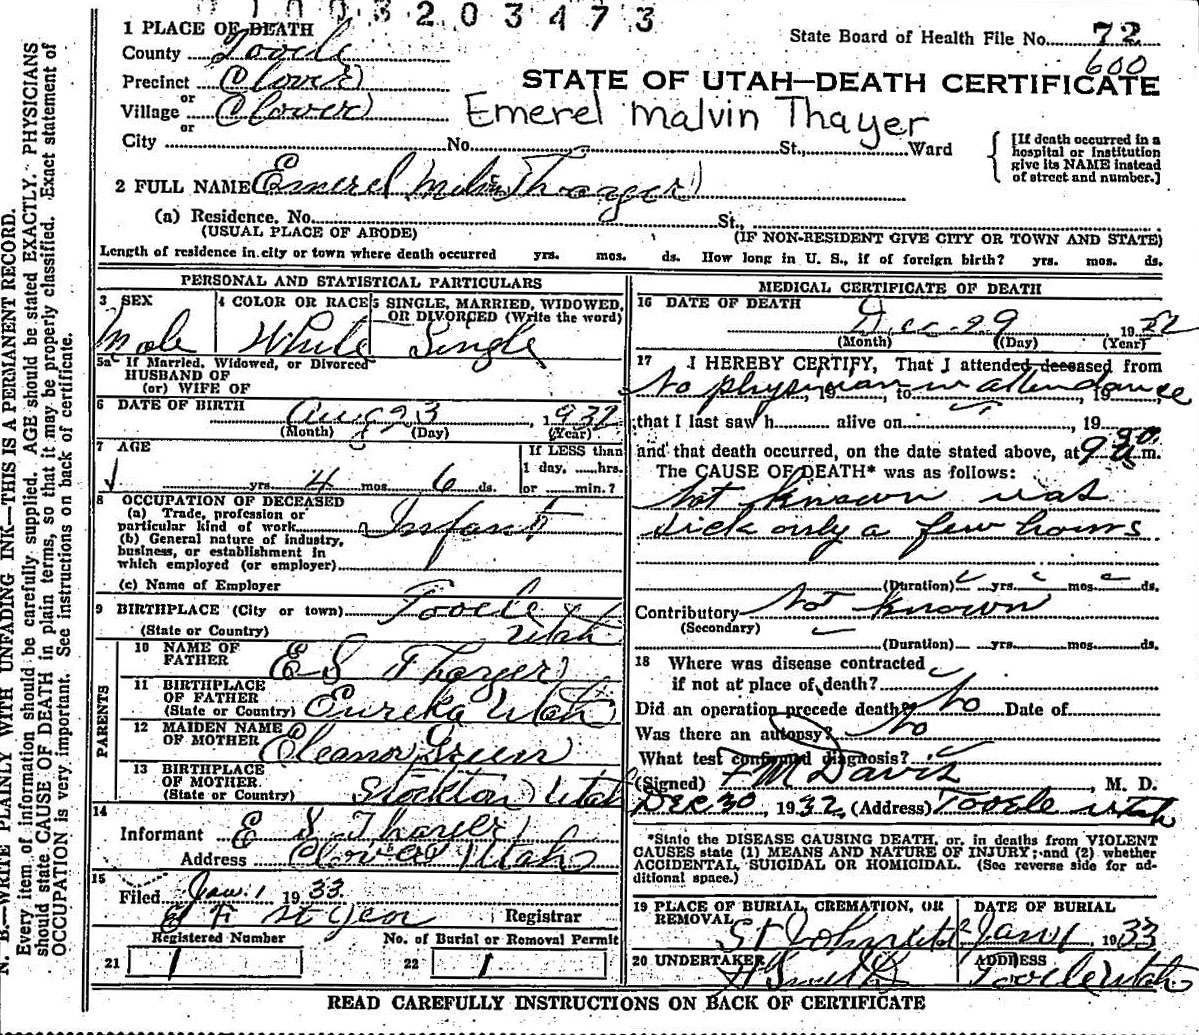 003203473
1 PLACE OF DEATH
State Board of Health File No. 72
County Tooele
600
Precinct Clover
STATE OF UTAH—DEATH CERTIFICATE
or
Village Clover
Emerel Malvin Thayer
or
City No. St., Ward
[If death occurred in a hospital or institution give its NAME instead of street and number.]
2 FULL NAME Emerel Melvin Thayer
(a) Residence. No. St.,
(USUAL PLACE OF ABODE) (IF NON-RESIDENT GIVE CITY OR TOWN AND STATE)
Length of residence in city or town where death occurred yrs. mos. ds. How long in U. S., if of foreign birth? yrs. mos. ds.
PERSONAL AND STATISTICAL PARTICULARS
3 SEX
Male
4 COLOR OR RACE
White
5 SINGLE, MARRIED, WIDOWED, OR DIVORCED (Write the word)
Single
5a If Married, Widowed, or Divorced
HUSBAND OF
(or) WIFE OF
6 DATE OF BIRTH Aug 23, 1932
(Month) (Day) (Year)
7 AGE
yrs. 4 mos. 6 ds.
If LESS than
1 day, hrs.
or min.?
8 OCCUPATION OF DECEASED
(a) Trade, profession or
particular kind of work Infant
(b) General nature of industry,
business, or establishment in
which employed (or employer)
(c) Name of Employer
9 BIRTHPLACE (City or town) Tooele
(State or Country) Utah
PARENTS
10 NAME OF
FATHER E S Thayer
11 BIRTHPLACE
OF FATHER
(State or Country) Eureka Utah
12 MAIDEN NAME
OF MOTHER Eleanor Green
13 BIRTHPLACE
OF MOTHER
(State or Country) Stockton Utah
14
Informant E S Thayer
Address Clover Utah
15
Filed Jan. 1 1933
Registrar
Registered Number No. of Burial or Removal Permit
21 1 22 1
MEDICAL CERTIFICATE OF DEATH
16 DATE OF DEATH
Dec 29, 1932
(Month) (Day) (Year)
17 I HEREBY CERTIFY, That I attended deceased from
No physician in attendance, 19, to, 19
that I last saw h alive on, 19
and that death occurred, on the date stated above, at 9 a.m.
The CAUSE OF DEATH* was as follows:
Not known was
sick only a few hours
(Duration) yrs. mos. ds.
Contributory Not known
(Secondary)
(Duration) yrs. mos. ds.
18 Where was disease contracted
if not at place of death?
Did an operation precede death? No Date of
Was there an autopsy? No
What test confirmed diagnosis?
(Signed) F M Davis, M. D.
Dec 30, 1932 (Address) Tooele Utah
*State the DISEASE CAUSING DEATH, or, in deaths from VIOLENT
CAUSES state (1) MEANS AND NATURE OF INJURY; and (2) whether
ACCIDENTAL, SUICIDAL OR HOMICIDAL. (See reverse side for ad-
ditional space.)
19 PLACE OF BURIAL, CREMATION, OR
REMOVAL St John Utah
DATE OF BURIAL
Jan 1 1933
20 UNDERTAKER
ADDRESS
Tooele Utah
READ CAREFULLY INSTRUCTIONS ON BACK OF CERTIFICATE
N. B.—WRITE PLAINLY WITH UNFADING INK—THIS IS A PERMANENT RECORD.
Every item of information should be carefully supplied. AGE should be stated EXACTLY. PHYSICIANS
should state CAUSE OF DEATH in plain terms, so that it may be properly classified. Exact statement of
OCCUPATION is very important. See instructions on back of certificate.